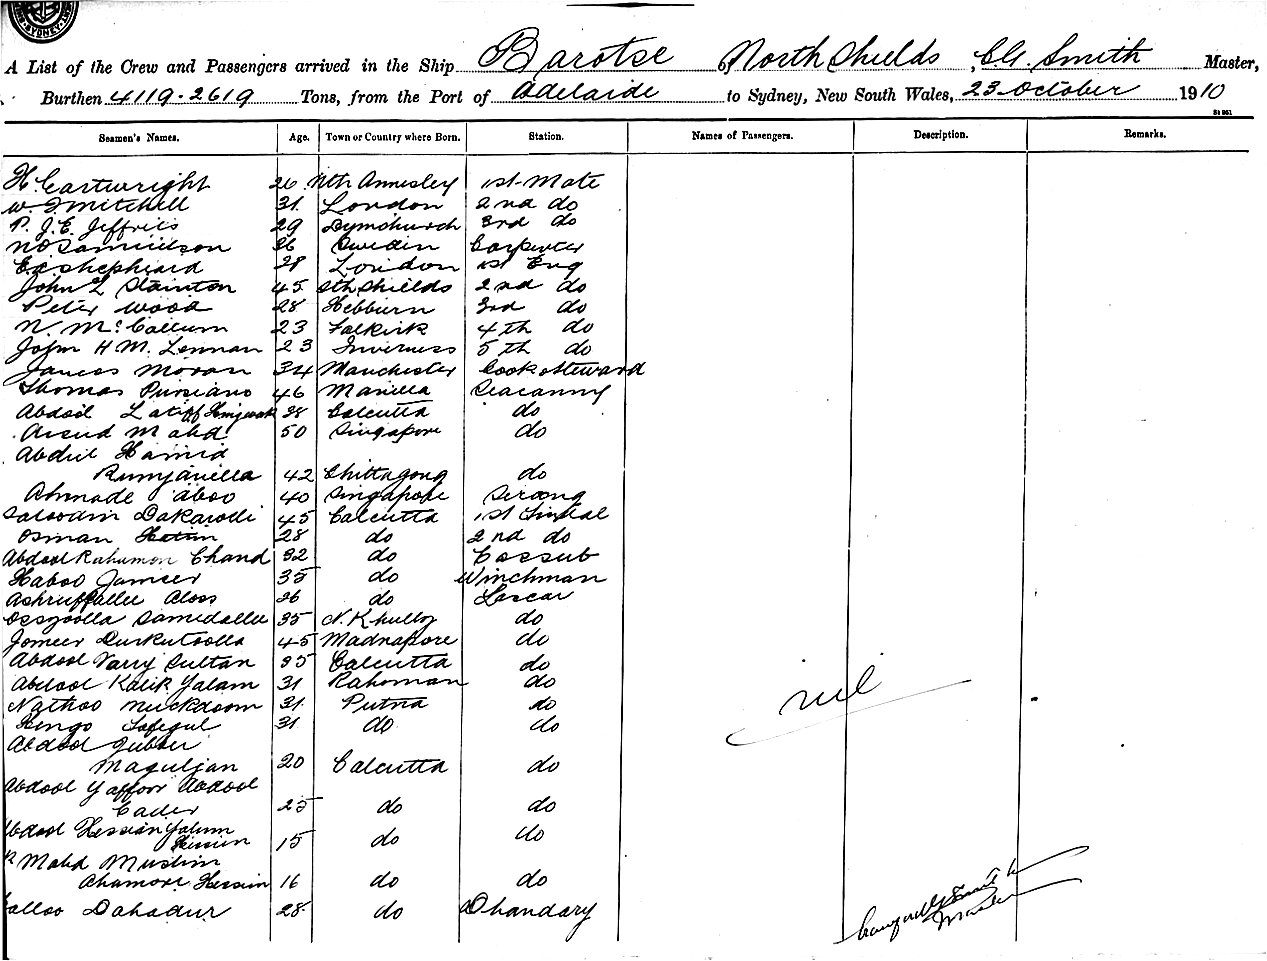 SYDNEY
A List of the Crew and Passengers arrived in the Ship Barotse of North Shields, Smith Master,
Burthen 4119-2619 Tons, from the Port of Adelaide to Sydney, New South Wales, 23 October 1910
Seamen's Names. Age. Town or Country where Born. Station. Names of Passengers. Description. Remarks.
H. Cartwright 26 Nth Annesley 1st Mate
W. J. Mitchell 31 London 2nd do
P. J. E. Jeffries 29 Dymchurch 3rd do
N O Samuelson 26 Sweden Carpenter
Shepheard 28 London 1st Eng
John L Stainton 45 Sth Shields 2nd do
Peter Wood 28 Hebburn 3rd do
N. McCallum 23 Falkirk 4th do
John H M. Lennan 23 Inverness 5th do
James Moran 34 Manchester Cook & Steward
Thomas Pursiano 46 Manilla Seacunny
Abdool Latiff 28 Calcutta do
Mahd 50 Singapore do
Abdul Hamid
42 Chittagong do
Ahmade aboo 40 Singapore Serang
Dakarodi 45 Calcutta 1st Tindal
Osman 28 do 2nd do
Abdool Rahumon Chand 32 do Cassub
Haboo Jameer 35 do Winchman
Ashruffallee Aloss 26 do Lascar
Ossgoolla Samedallee 35 N. Khully do
Jomeer Durkutoolla 45 Madnapore do
Abdool Varry Sultan 35 Calcutta do
Abdool Kalik Yalam 31 Rahoman do
Nathoo Muckdoom 31 Putna do
Hengo Safegul 31 do do
Abdool Jubber
Maguljan 20 Calcutta do
Abdool Yaffoor Abdool
Cader 25 do do
Abdool Hessian Yalum
Hessien 15 do do
Mahd Muslim
Ahamore Hessin 16 do do
Dahadur 28 do Bhandary
nil
Smith
Master